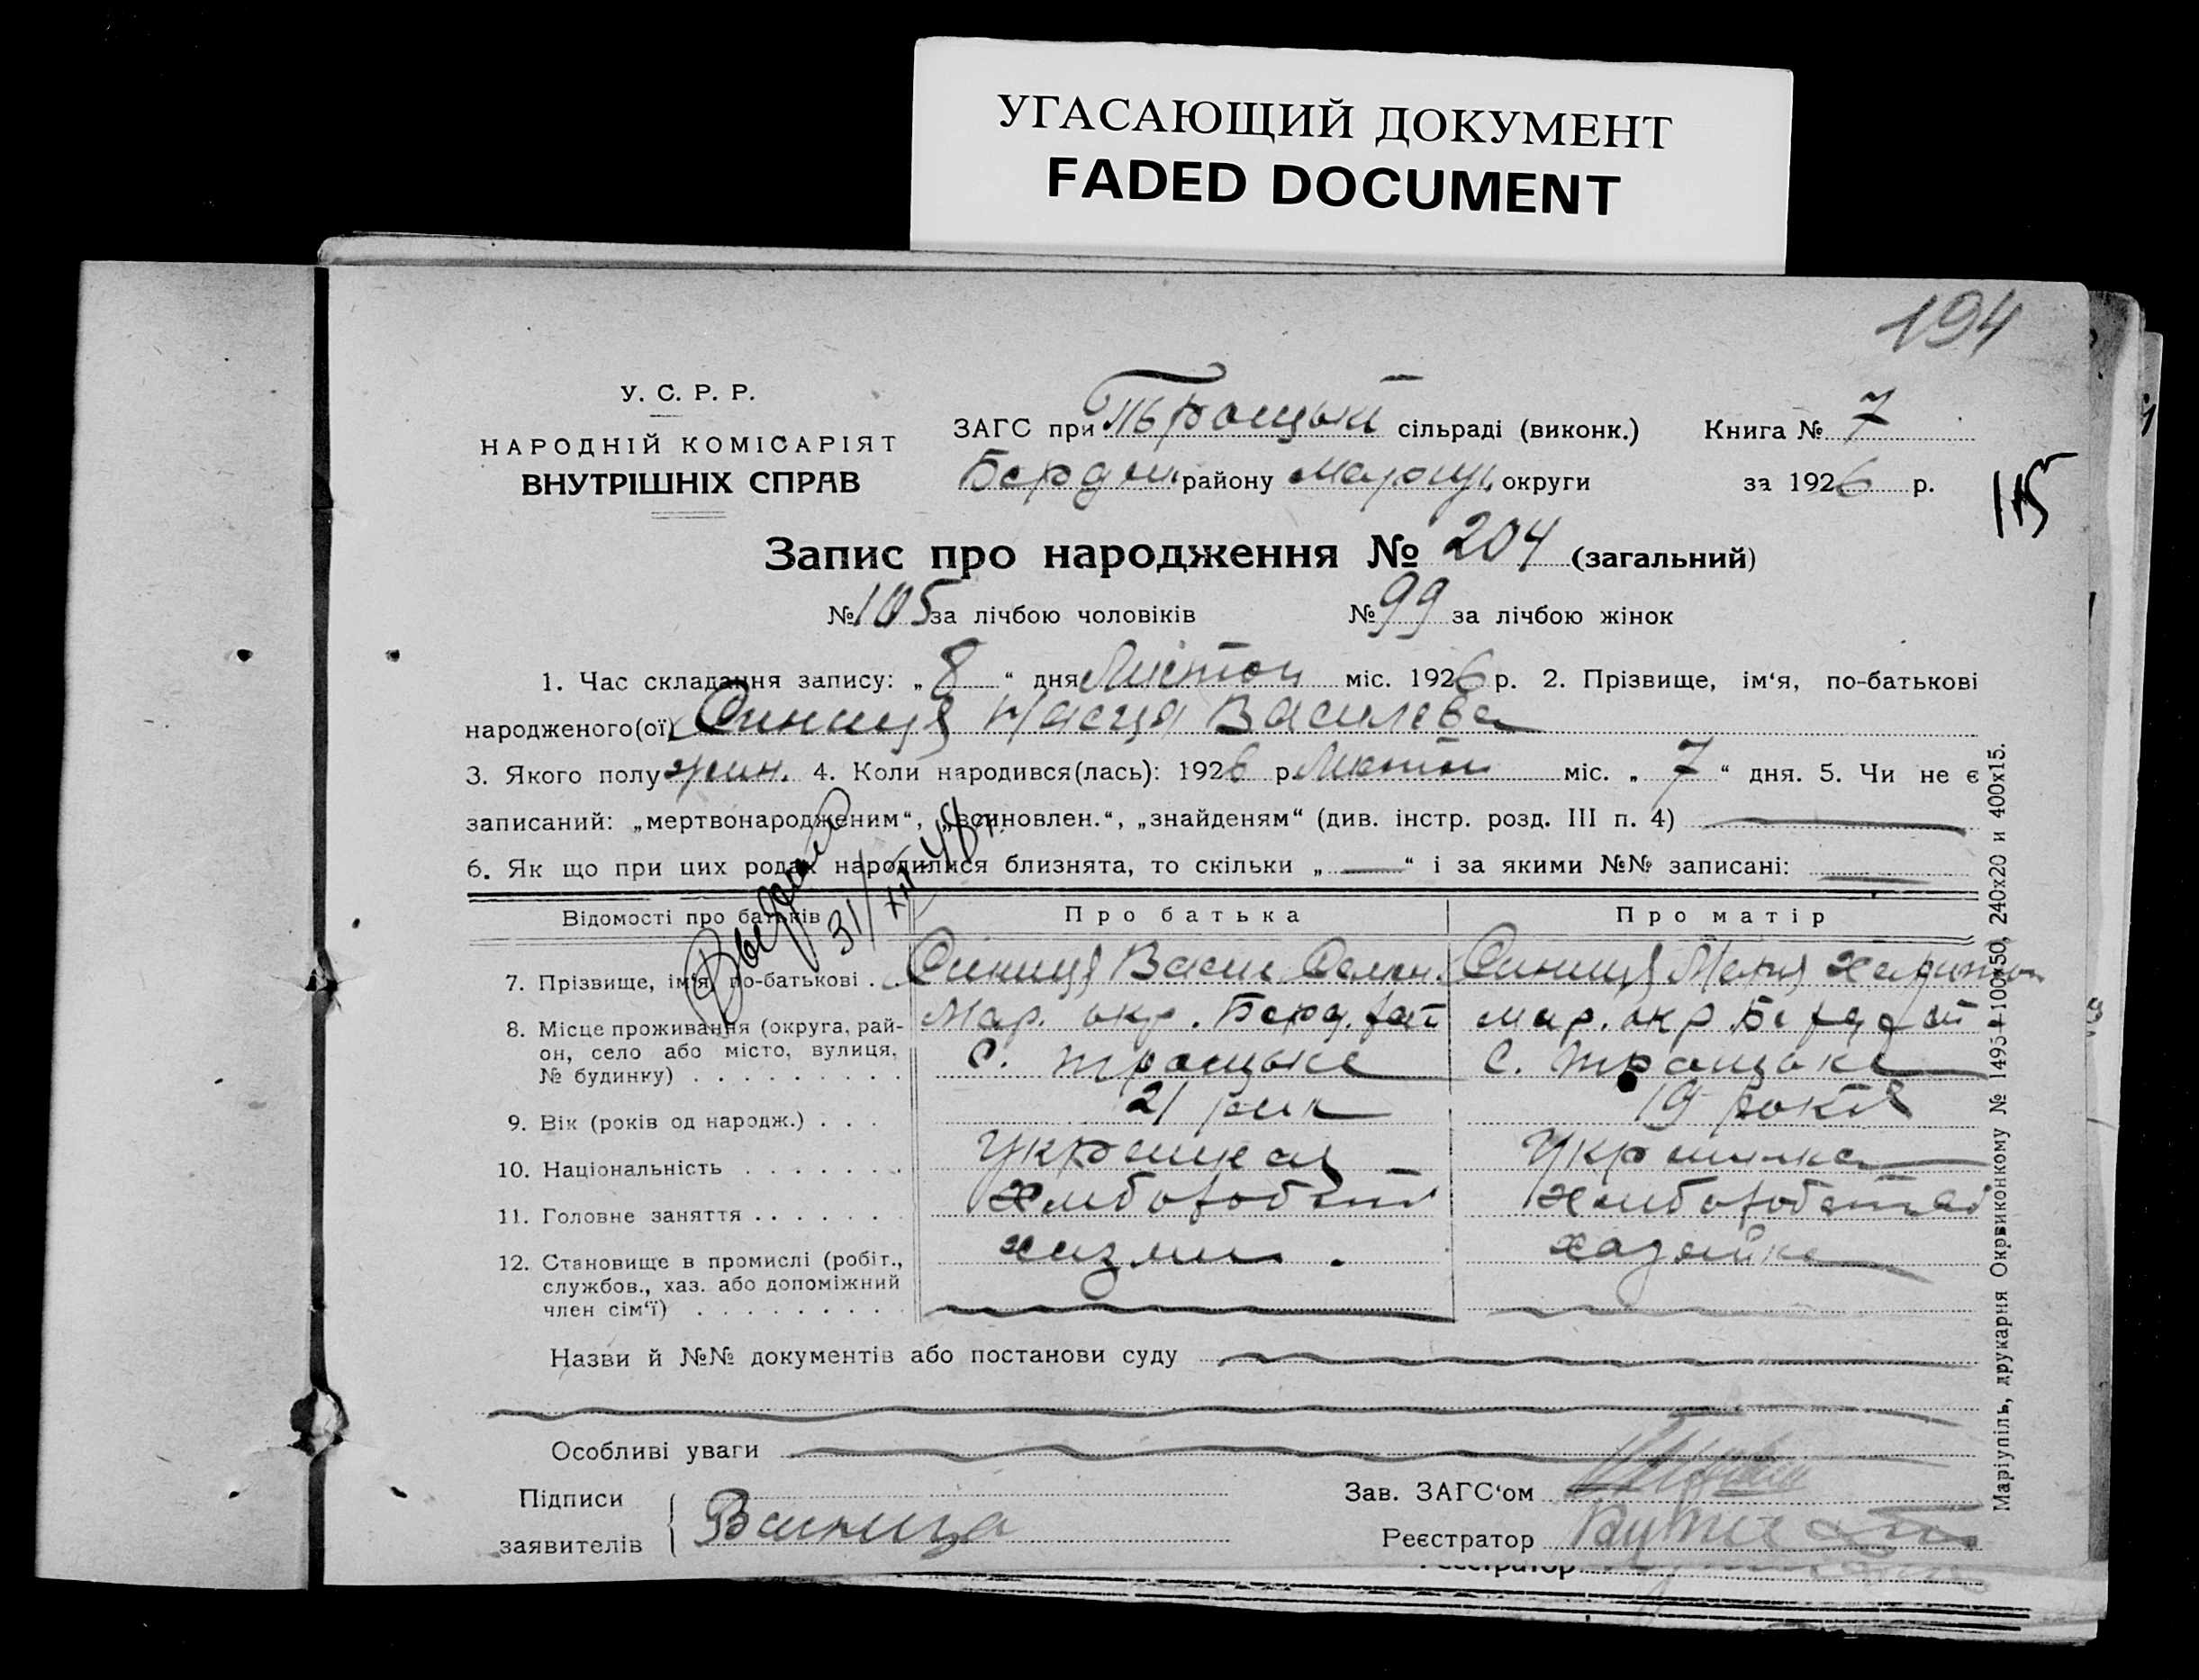 УГАСАЮЩИЙ ДОКУМЕНТ
FADED DOCUMENT
194
У. С. Р. Р.
НАРОДНІЙ КОМІСАРІЯТ
ВНУТРІШНІХ СПРАВ
ЗАГС при Троцькій сільраді (виконк.) Книга № 7
Бердян. району Маріуп. округи за 1926 р.
115
Запис про народження № 204 (загальний)
№ 105 за лічбою чоловіків № 99 за лічбою жінок
1. Час складання запису: „ 8 “ дня Листоп міс. 1926 р. 2. Прізвище, ім‘я, по-батькові
народженого(ої) Синиця Настя Василева
3. Якого полу жін. 4. Коли народився(лась): 1926 р. Листоп міс. „ 7 “ дня. 5. Чи не є
записаний: „мертвонародженим“, „всиновлен.“, „знайденям“ (див. інстр. розд. III п. 4)
6. Як що при цих родах народилися близнята, то скільки „ — “ і за якими №№ записані:
Відомості про батьків Про батька Про матір
7. Прізвище, ім‘я, по-батькові . . Синиця Васил Синиця Мария Харитон
8. Місце проживання (округа, рай-он, село або місто, вулиця, № будинку) . . . . . . . . . Мар. окр. Берд. рай Мар. окр Берд рай
с. Троцьке с. Троцьке
9. Вік (років од народж.) . . . 21 рик 19 років
10. Національність . . . . . . . Украинец Украинка
11. Головне заняття . . . . . . . Хлиборобст Хлиборобства
12. Становище в промислі (робіт., службов., хаз. або допоміжний член сім‘ї) . . . . . . . . . хазяин. хазяйка
Видано
31/XII-48 г.
Назви й №№ документів або постанови суду
Особливі уваги
Підписи
заявителів
Зав. ЗАГС‘ом
Реєстратор
Реєстратор
Маріупіль, друкарня Окрвиконкому № 1495 + 100х50, 240х20 и 400х15.